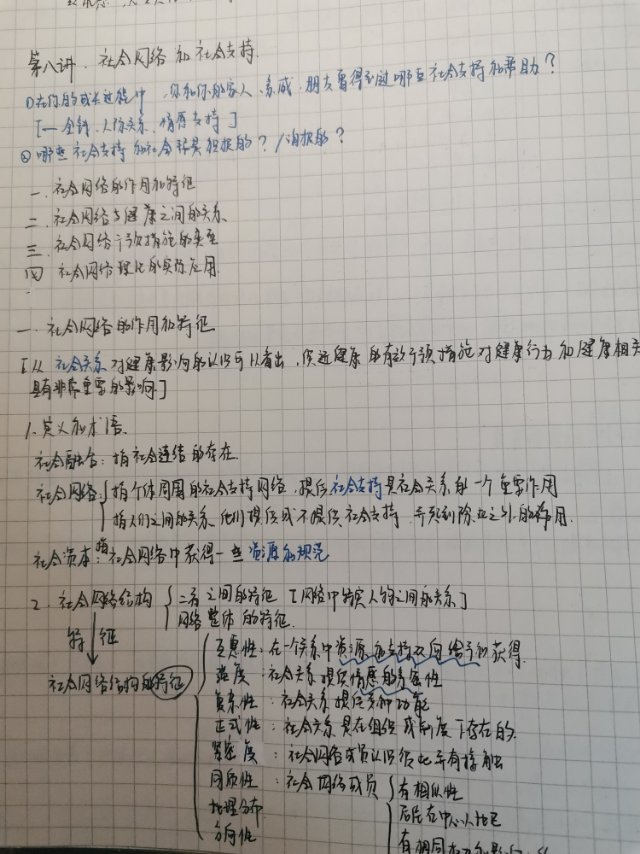 第八讲. 社会网络和社会支持.
①在你的成长过程中,你和你的家人、亲戚、朋友曾得到过哪些社会支持和帮助?
[一 金钱、人际关系、情感支持]
②哪些社会支持和社会 是积极的?/消极的?
一. 社会网络的作用和特征
二. 社会网络与健康之间的关系
三. 社会网络干预措施的类型
四 社会网络理论的实际应用.
一. 社会网络的作用和特征
[从社会关系对健康影响的认识可以看出,促进健康的有效干预措施对健康行为和健康相关
具有非常重要的影响]
1. 定义和术语.
社会融合:指社会连结的存在.
社会网络 指个体周围的社会支持网络,提供社会支持是社会关系的一个重要作用
指人们之间的关系,他们提供或不提供社会支持,并起到除此之外的作用.
社会资本:指社会网络中获得一些资源和规范
2. 社会网络结构 二者之间的特征 [网络中 人的之间的关系]
网络整体的特征.
特征
社会网络结构的特征
互惠性:在一个关系中资源和支持双向给予和获得.
强度:社会关系提供情感的亲密性
复杂性:社会关系提供多种功能
正式性:社会关系是在组织或制度下存在的.
紧密度:社会网络成员认识彼此并有接触
同质性:社会网络成员 有相似性
地理分布
居住在中心人地区
方向性
有相同